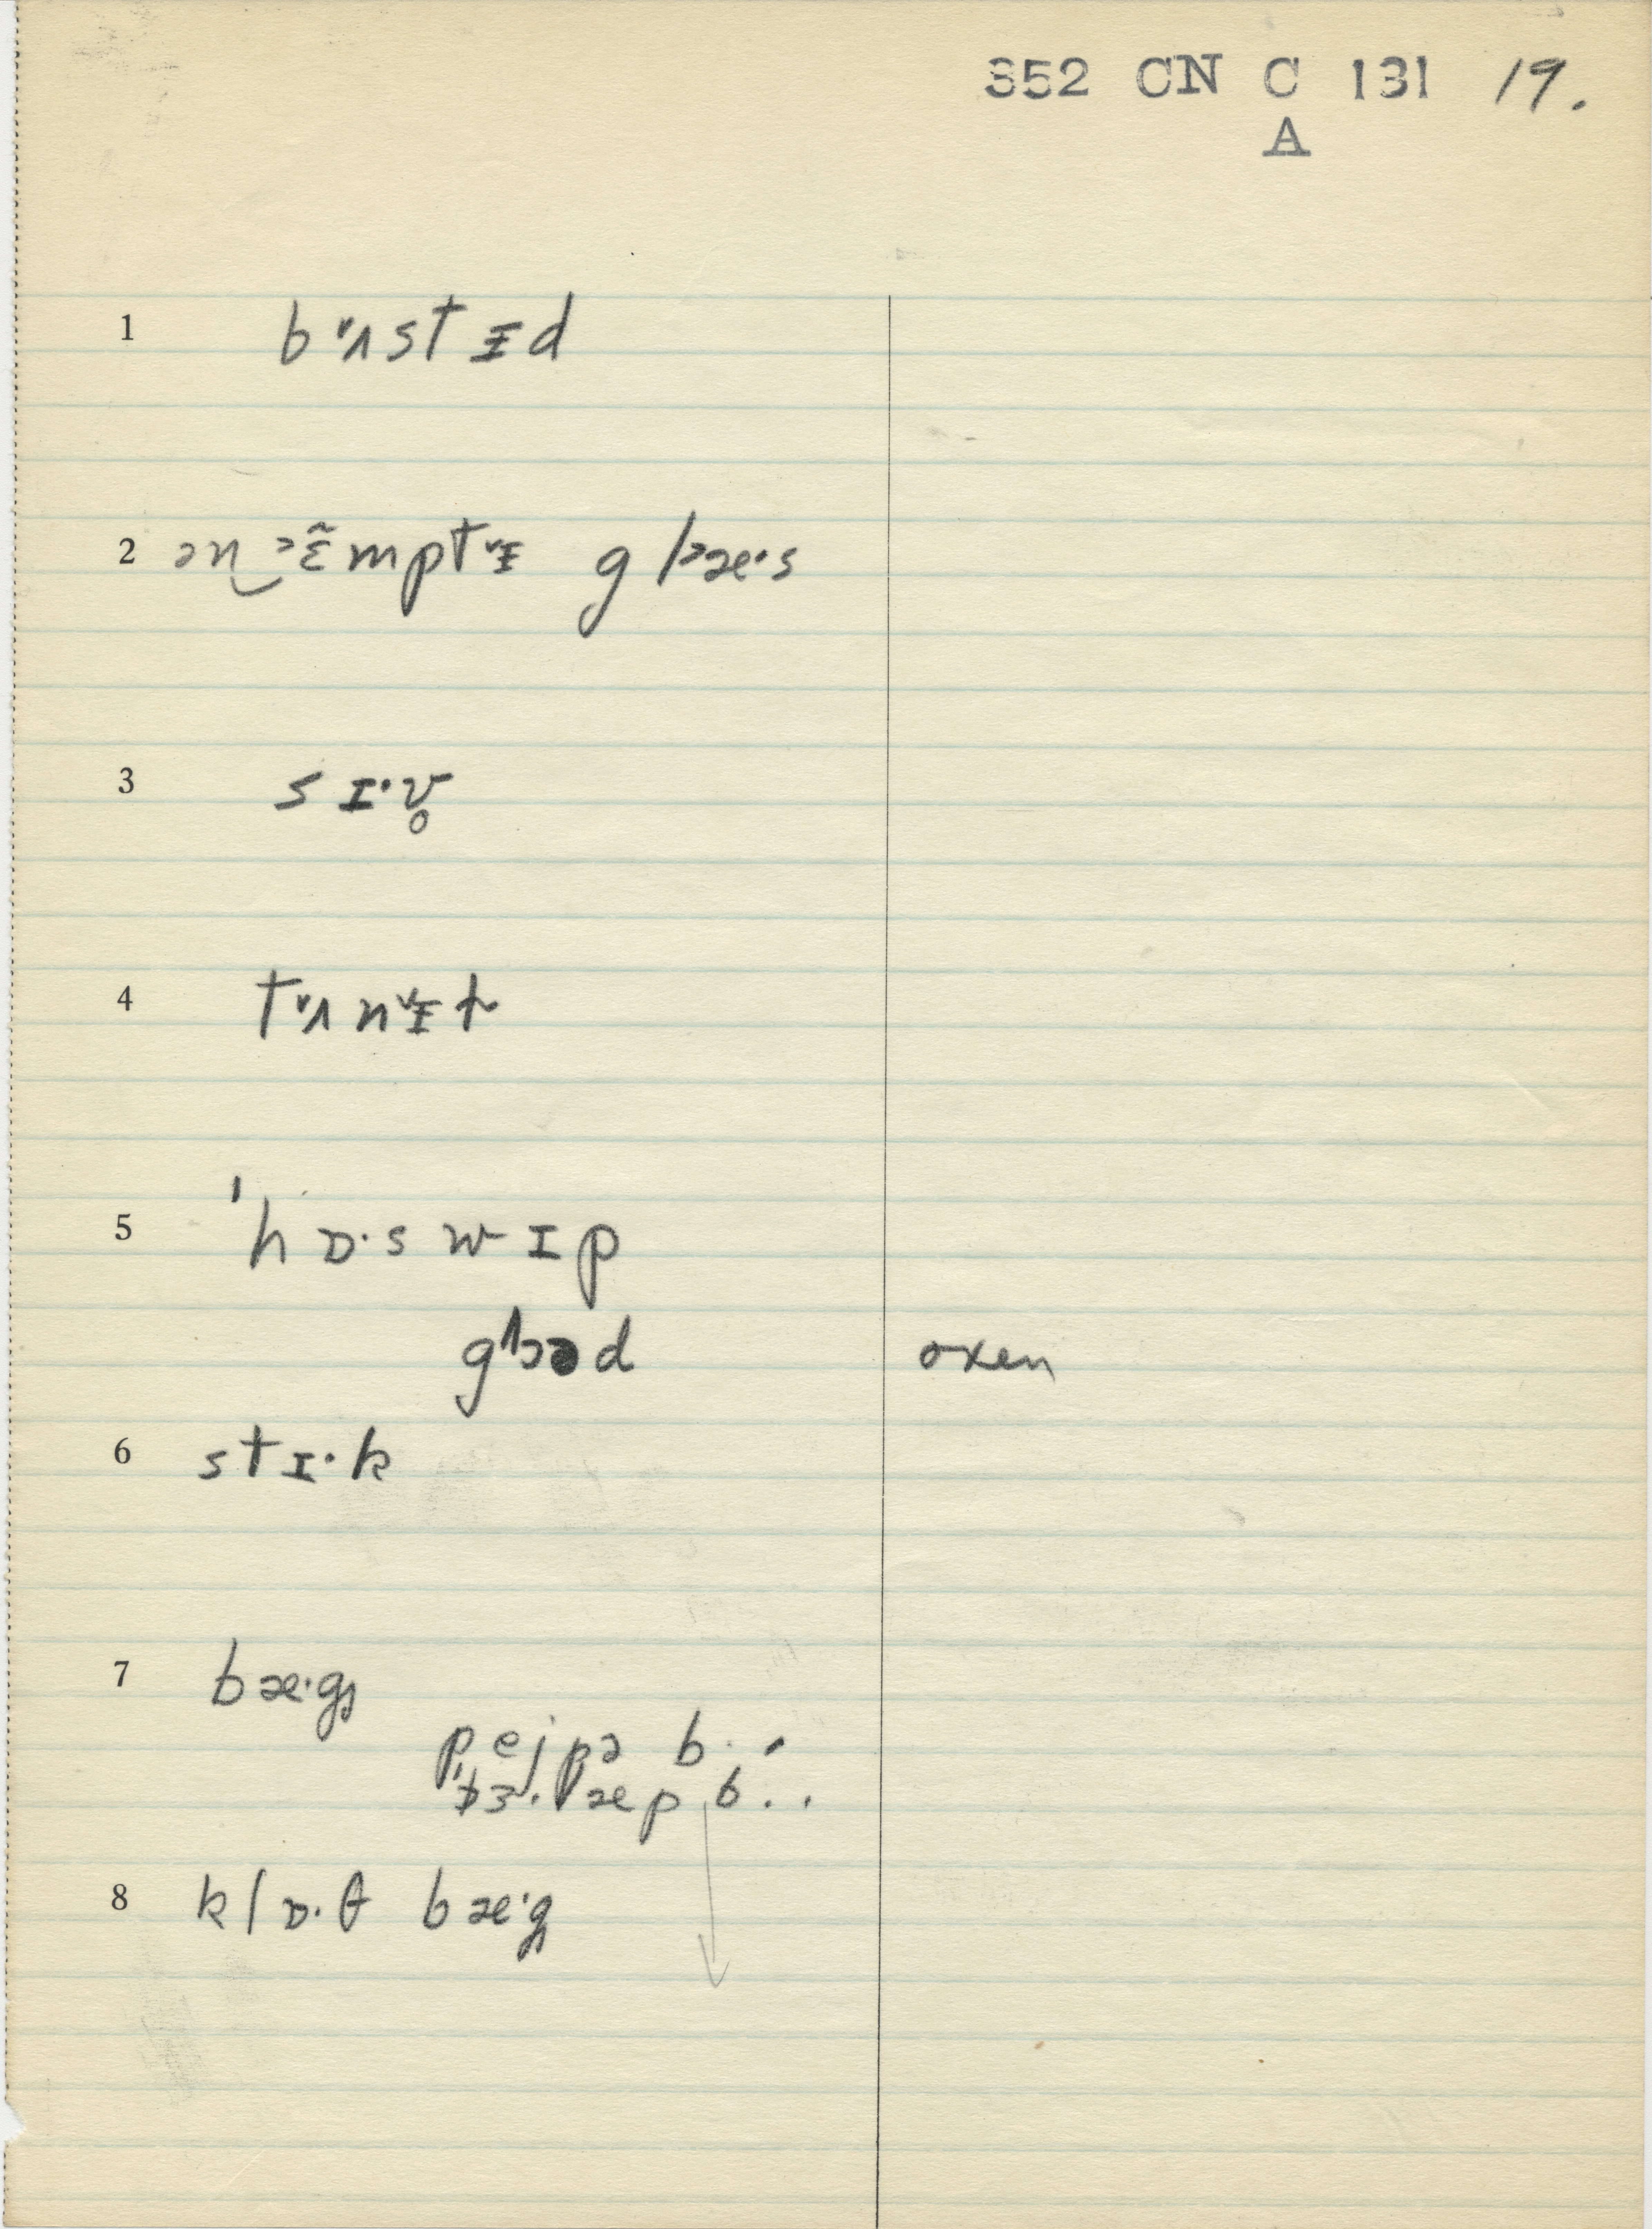 352 CN C 131 19.
A
1 b˅ʌstᵻd
2 ən ˃ɛ̃mpt˅ᵻ gl˃æ·s
3 sɪ·v̥
4 t˅ʌn˅ᵻɫ
5 ˈhɒ·swɪp
goəd oxen
6 stɪ·k
7 bæ·g̥
pejpə b. .
b. .
8 klɒ·θ bæ·g̥